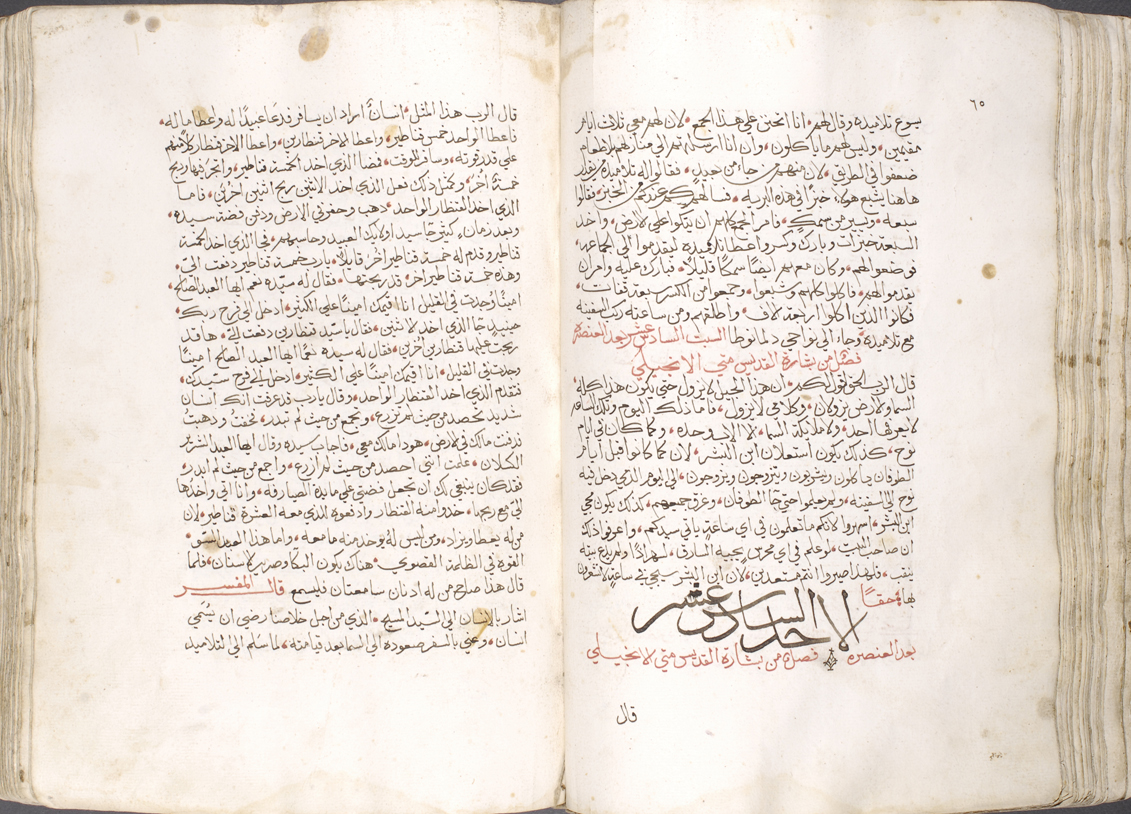 ٦٥
يسوع تلاميذه وقال لهم٠ انا اتحنن علي هذا الجمع٠ لان لهم معي ثلاثت ايام
مقيمين٠ وليس لهم ما ياكلون٠ وان انا ارسلتهم الي منازلهم بلا طعام
ضعفوا في الطريق٠ لان منهم من جاء من بعيدٍ٠ فقالوا له تلاميذه من يقدر
هاهنا يشبع هولاء خبزًا في هذه البريه٠ فسالهم كم عندكم من الخبز٠ فقالوا
سبعة٠ ويسير من سمكٍ٠ فامر الجمع كلهم ان يتكوا علي الارض٠ واخد
السبعة خبزات وبارك وكسر واعطا تلاميذه ليقدموا الي الجماعه
فوضعوا لهم٠ وكان معهم ايضًا سمكًا قليلاً٠ فبارك عليه وامر ان
يقدموا لهم٠ فاكلوا كلهم وشبعوا٠ وجمعوا من الكسر سبعة قفات٠
فكانوا الذين اكلوا اربعة الاف٠ واطلقهم ومن ساعته ركب السفينه
مع تلاميذه٠ وجاء الي نواحي دلمانوطا السبت السادس عشر بعد العنصره
فصل من بشارة القديس متي الانجيلي
قال الرب الحق اقول لكم٠ ان هذا الجيل لا يزول حتي يكون هذا كله
السما والارض يزولان٠ وكلامي لا يزول٠ فاما ذلك اليوم وتلك الساعه
لا يعرف احد٠ ولا ملايكة السما٠ الا الاب وحده٠ وكما كان في ايام
نوح٠ كذلك يكون استعلان ابن البشر٠ لان كما كانوا قبل ايام
الطوفان ياكلون ويشربون ويتزوجون ويزوجون٠ الي اليوم الذي دخل فيه
نوح الي السفينة٠ ولم يعلموا حتي جا الطوفان٠ وغرق جميعهم٠ كذلك يكون مجي
ابن البشر٠ اسهروا لانكم ما تعلمون في اي ساعةٍ ياتي سيدكم٠ واعرفوا ذلك
ان صاحب البيت٠ لو علم في اي محرس يجيه السارق٠ لسهر اذًا ولم يدع بيته
ينقب٠ فلهذا صيروا انتم مستعدين٠ لان ابن البشر يجي في ساعةٍ لا تشعرون
بها٠ حقًا
الاحد السادس عشر
بعد العنصره فصل من بشارة القديس متي الانجيلي
قال
قال الرب هذا المثل٠ انسانًا اراد ان يسافر فدعا عبيدًا له واعطا ماله٠
فاعطا الواحد خمس قناطير٠ واعطا الاخر قنطارين٠ واعطا الاخر قنطار كلامنهم
علي قدر قوته٠ وسافر للوقت٠ فمضا الذي اخد الخمسة قناطير٠ واتجر فيها وربح
خمسةً اُخر٠ وكمثل ذلك فعل الذي اخد الاثنين ربح اثنين اخرين٠ فاما
الذي اخد القنطار الواحد٠ دهب وحفر في الارض ودفن فضة سيده٠
وبعد زمانٍ كثيرٍ جا سيد اولايك العبيد وحاسبهم٠ فجا الذي اخد الخمسة
قناطير وقدم له خمسة قناطير اخر قايلاً٠ يارب خمسة قناطير دفعت اليّ٠
وهذه خمسة قناطير اخر قد ربحتها٠ فقال له سيّده نعم ايها العبد الصالح٠
امينًا وُجدت في القليل انا اقيمك امينًا علي الكثير٠ ادخل الي فرح ربك٠
حينيدٍ جا الذي اخد الاثنين٠ فقال يا سيّد قنطارين دفعت اليّ٠ ها قد
ربحت عليها قنطارين اخرين٠ فقال له سيده نعمًا ايها العبد الصالح امينًا
وجدت في القليل٠ انا اقيمك امينًا علي الكثير٠ ادخل الي فرح سيدك٠
فتقدم الذي اخد القنطار الواحد٠ وقال يارب قد عرفت انك انسان
شديد تحصد من حيث لم تزرع٠ وتجمع من حيث لم تبدر٠ فخفت ودهبت
فدفنت مالك في الارض٠ هودا مالك معي٠ فاجاب سيده وقال ايها العبد الشرير
الكلان٠ علمت انني احصد من حيث لم ازرع٠ واجمع من حيث لم ابدر٠
فقد كان ينبغي لك ان تجعل فضتي علي مايدة الصيارفة٠ وانا اتي واخدها
اليّ مع ربحها٠ خدوا منه القنطار وادفعوه للذي معه العشرة قناطير٠ لان
من له يعطا ويزاد٠ ومن ليس له يوخد منه ما معه٠ واما هذا العبد السو٠
القوه في الظلمة القصوي٠ هناك يكون البكا وصرير الاسنان٠ فلما
قال هذا صاح من له ادنان سامعتان فليسمع قال المفسر
اشار بالانسان الي السيد المسيح٠ الذي من اجل خلاصنا رضي ان يُسمّي
انسان٠ وعني بالسفر صعوده الي السما بعد قيامته٠ لما سلم الي التلاميد